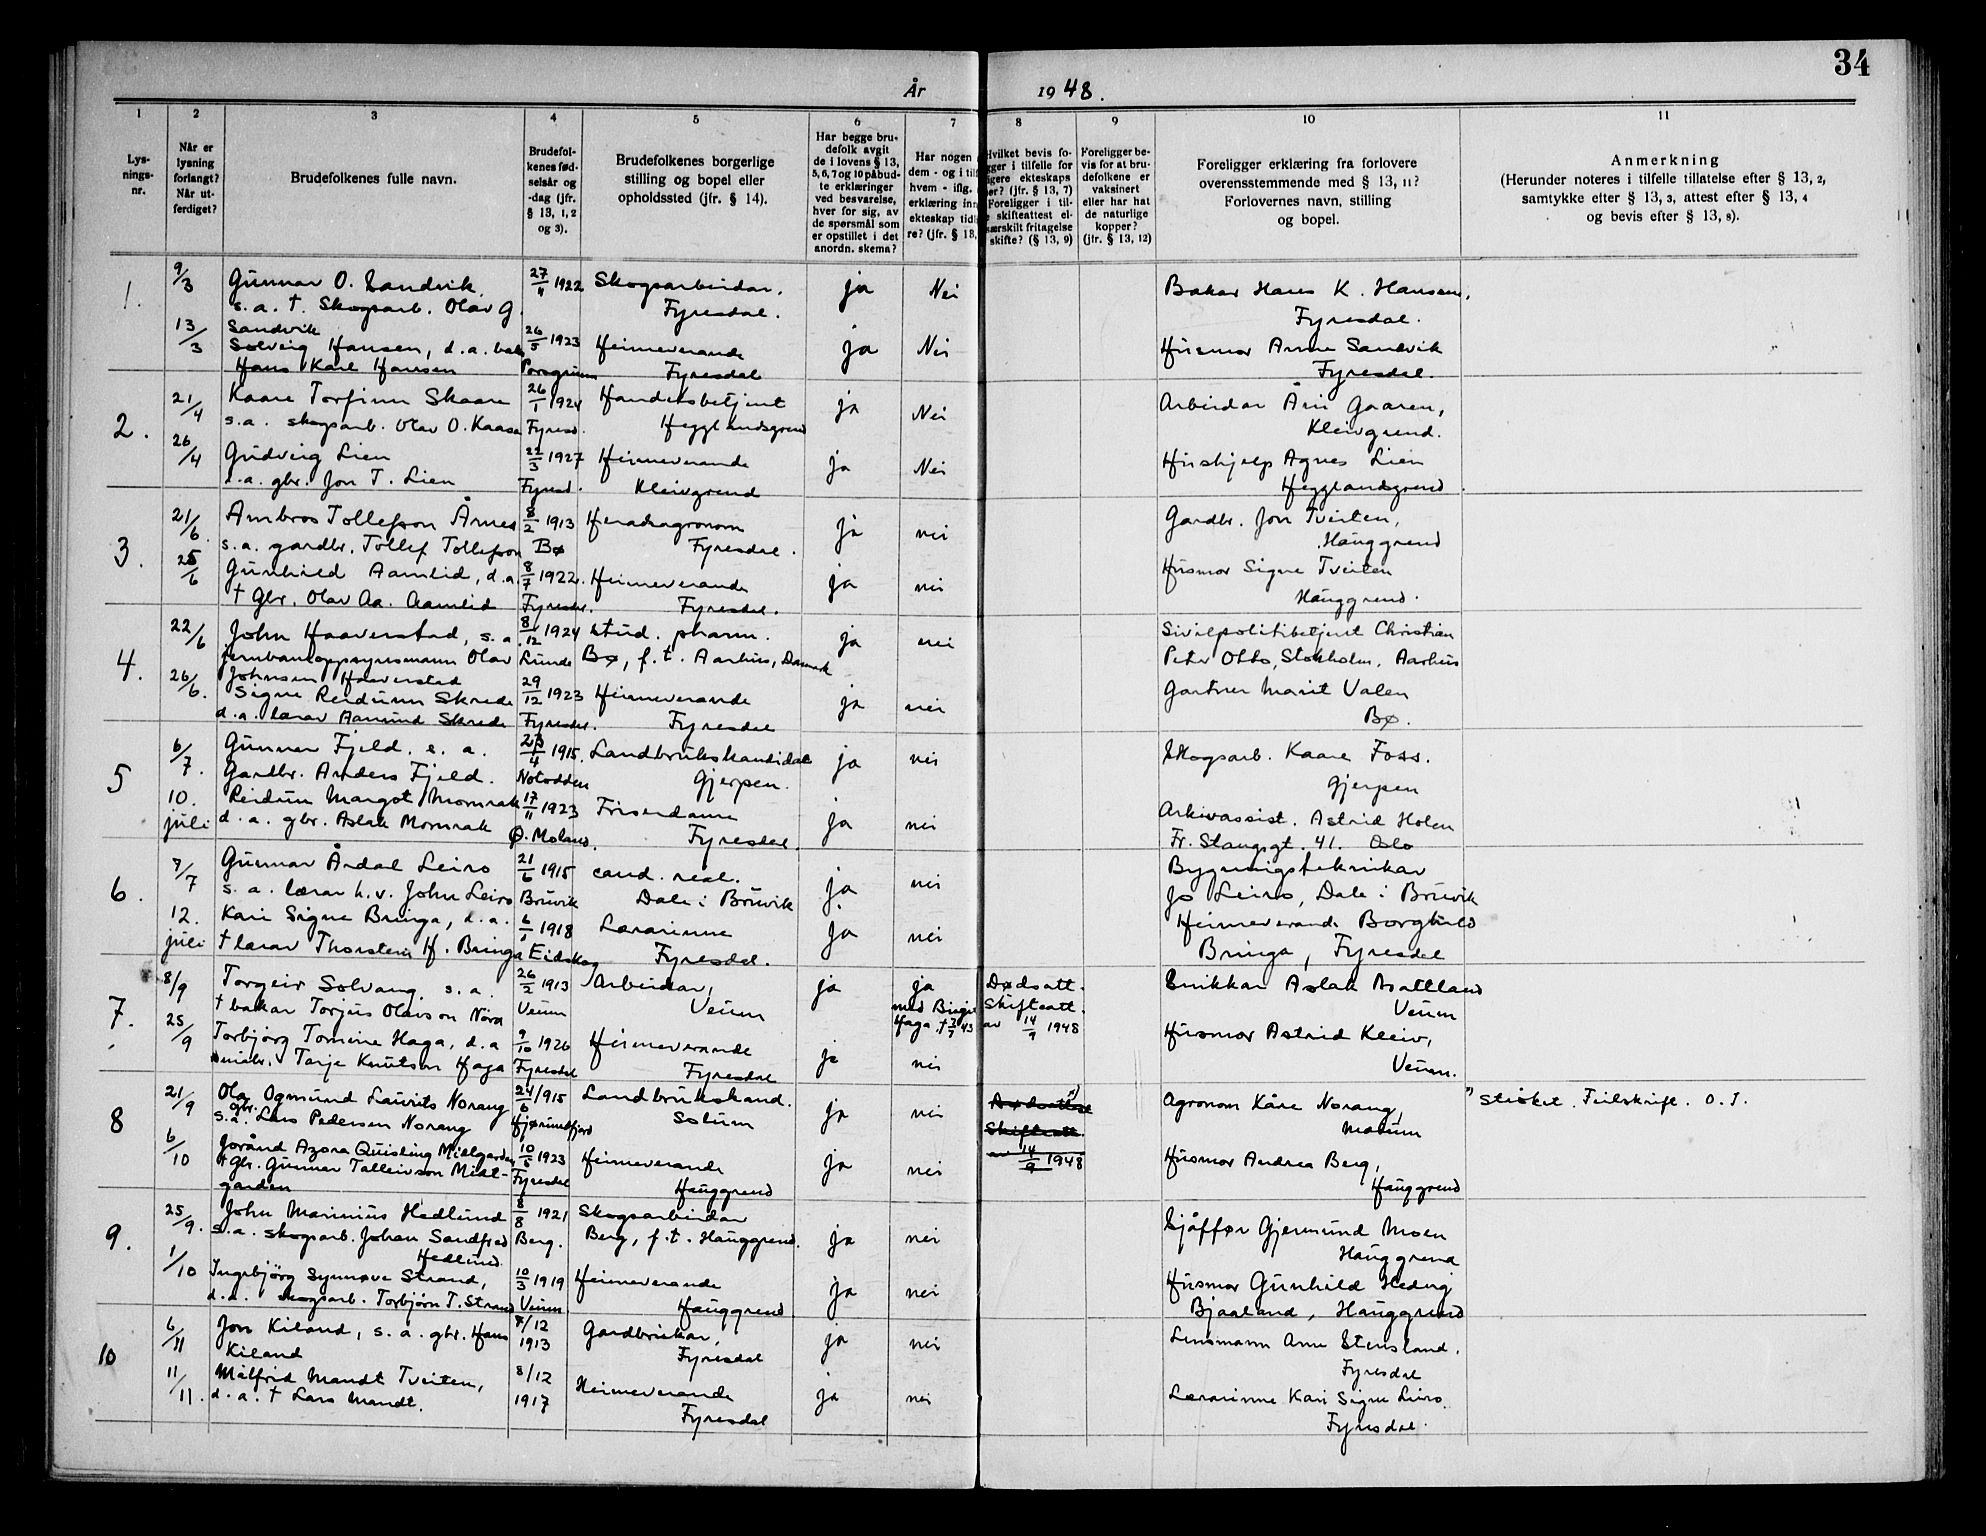 34
År 1948.
1
Lys-
nings-
nr.
2
Når er
lysning
forlangt?
Når ut-
ferdiget?
3
Brudefolkenes fulle navn.
4
Brudefol-
kenes fød-
selsår og
-dag (jfr.
§ 13, 1, 2
og 3).
5
Brudefolkenes borgerlige
stilling og bopel eller
opholdssted (jfr. § 14).
6
Har begge bru-
defolk avgit
de i lovens § 13,
5, 6, 7 og 10 påbud-
te erklæringer
ved besvarelse,
hver for sig, av
de spørsmål som
er opstillet i det
anordn. skema?
7
Har nogen
dem - og i tilf
hvem - iflg.
erklæring inn
ekteskap tidl
re? (jfr. § 13,
8
Hvilket bevis fo-
gger i tilfelle for
igere ekteskaps
er? (jfr. § 13, 7)
Foreligger i til-
e skifteattest el-
særskilt fritagelse
skifte? (§ 13, 9)
9
Foreligger be-
vis for at bru-
defolkene er
vaksinert
eller har hat
de naturlige
kopper?
(jfr. § 13, 12)
10
Foreligger erklæring fra forlovere
overensstemmende med § 13, 11?
Forlovernes navn, stilling
og bopel.
11
Anmerkning
(Herunder noteres i tilfelle tillatelse efter § 13, 2,
samtykke efter § 13, 3, attest efter § 13, 4
og bevis efter § 13, 8).
1. 9/3 Gunnar O. Sandvik 27/11 1922 Skogsarbeidar, ja Nei Bakar Hans K. Hansen,
s. a. † Skogsarb. Olav G. Fyresdal. Fyresdal.
Sandvik
13/3 Solveig Hansen, d. a. bak. 26/5 1923 Heimeverande ja Nei Husmor Anne Sandvik
Hans Karl Hansen Porsgrunn Fyresdal Fyresdal.
2. 21/4 Kaare Torfinn Skaare 26/1 1924 Handelsbetjent ja Nei Arbeidar Åni Gaaren,
s. a. skogsarb. Olav O. Kaasa Fyresd. Hegglandsgrend Kleivgrend.
26/4 Gudveig Lien 22/3 1927 Heimeverande ja Nei Hushjelp Agnes Lien
d. a. gbr. Jon T. Lien Fyresd. Kleivgrend Hegglandsgrend.
3. 21/6. Ambros Tollefson Årnes 8/2 1913 Heradsagronom ja nei Gardbr. Jon Tveiten,
s. a. gardbr. Tollef Tollefson Bø Fyresdal. Hauggrend
25/6 Gunhild Aamlid, d. a. 8/7 1922. Heimeverande ja nei Husmor Signe Tveiten
† Gbr. Olav Aa. Aamlid Fyresdal. Fyresdal. Hauggrend.
4. 22/6 John Haaverstad, s. a. 8/12 1924 stud. pharm. ja nei Sivilpolitibetjent Christian
jernbaneoppsynsmann Olav Lunde Bø, f. t. Aarhus, Danmark Peter Otto, Stokholm. Aarhus
Johnsen Haaverstad
26/6. Signe Reidunn Skrede 29/12 1923 Heimeverande ja nei Gartner Marit Valen
d. a. lærar Aamund Skrede Fyresdal. Fyresdal Bø.
5 6/7. Gunnar Fjeld. s. a. 23/4 1915. Landbrukskandidat ja nei Skogsarb. Kaare Foss.
Gardbr. Anders Fjeld. Notodden Gjerpen. Gjerpen
10. juli Reidun Margot Momrak 17/11 1923 Frisørdame ja nei Arkivassist. Astrid Holen
d. a. gbr. Aslak Momrak Ø. Moland. Fyresdal. Fr. Stangsgt. 41. Oslo
6. 7/7 Gunnar Årdal Leiro 21/6 1915 cand. real. ja nei Bygningsteknikar
s. a. lærar h. v. John Leiro Bruvik Dale i Bruvik Jo Leiro, Dale i Bruvik
12. juli Kari Signe Bringa, d. a. 6/1 1918 Lærarinne ja nei Heimeverande Borghild
† lærar Thorstein H. Bringa Eidskog Fyresdal. Bringa, Fyresdal
7. 8/9 Torgeir Solvang. s. a. 26/2 1913 Arbeidar, ja ja Dødsatt. Snikkar Aslak Aattland
† bakar Torjus Olavson Nöra Veum Veum med Birgit Skifteatt. Veum
Haga † 2/7 43 av 14/9 1948
25/9 Torbjörg Tomine Haga, d. a. 9/10 1926 Heimeverande ja nei Husmor Astrid Kleiv,
Tarje Knutson Haga Fyresdal Fyresdal Veum.
8 21/9 Olav Ogmund Laurits Norang 24/6 1915 Landbrukskand. ja nei Dødsattest 1) Agronom Kåre Norang, 1) Strøket. Feilskrift. O. T.
s. a. gbr. Lars Pedersen Norang Hjørundfjord Solum Skifteatt. Modum
6/10 Jorånd Azora Quisling Midtgarden 10/6 1923 Heimeverande ja nei av 14/9 1948 Husmor Andrea Berg,
† Gbr. Gunnar Talleivson Midt- Fyresdal Hauggrend Hauggrend
garden
9. 25/9. John Marinius Hedlund 8/8 1921 Skogsarbeidar ja nei Sjåffør Gjermund Moen
s. a. skogsarb. Johan Sandfred Berg. Berg, f. t. Hauggrend. Hauggrend
Hedlund.
1/10 Ingebjörg Synnøve Strand, 10/3 1919 Heimeverande ja nei Husmor Gunhild Hedvig
d. a. skogsarb. Torbjörn T. Strand Veum Hauggrend Bjaaland, Hauggrend
10 6/11 Jon Kiland, s. a. gbr. Hans 7/12 1913 Gardbrukar, ja nei Lensmann Arne Stensland,
Kiland Fyresdal Fyresdal
11/11. Målfrid Mandt Tveiten, 8/12 1917 Heimeverande ja nei Lærarinne Kari Signe Leiro.
d. a. † Lars Mandt. Fyresdal Fyresdal.